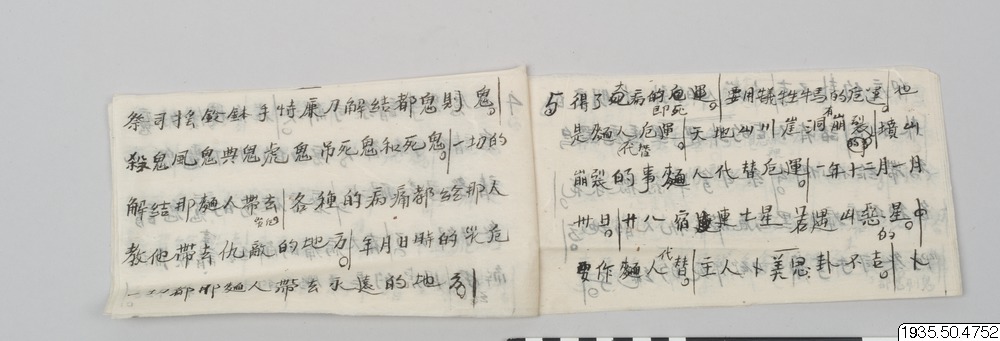 祭司搖鈸鉢手特廉刀解結都鬼則鬼。
殺鬼風鬼與鬼虎鬼吊死鬼和死鬼。一切的
解結那麵人帶去各種的病痛都給那人
教他帶去仇敵的地方。年月日時的災危
一一都那麵人帶去永遠的地方。
5 得了 病的 運。要用犧牲 的危運。也
即死
是麵人危運。天地山川崖洞有崩裂 墳山
代替
崩裂的事麵人代替危運。一年十二月一月
卅日。廿八宿 連土星 若遇凶惡星中
的。
要作麵人代替主人卜美思卦不吉。卜
1935.50.4752